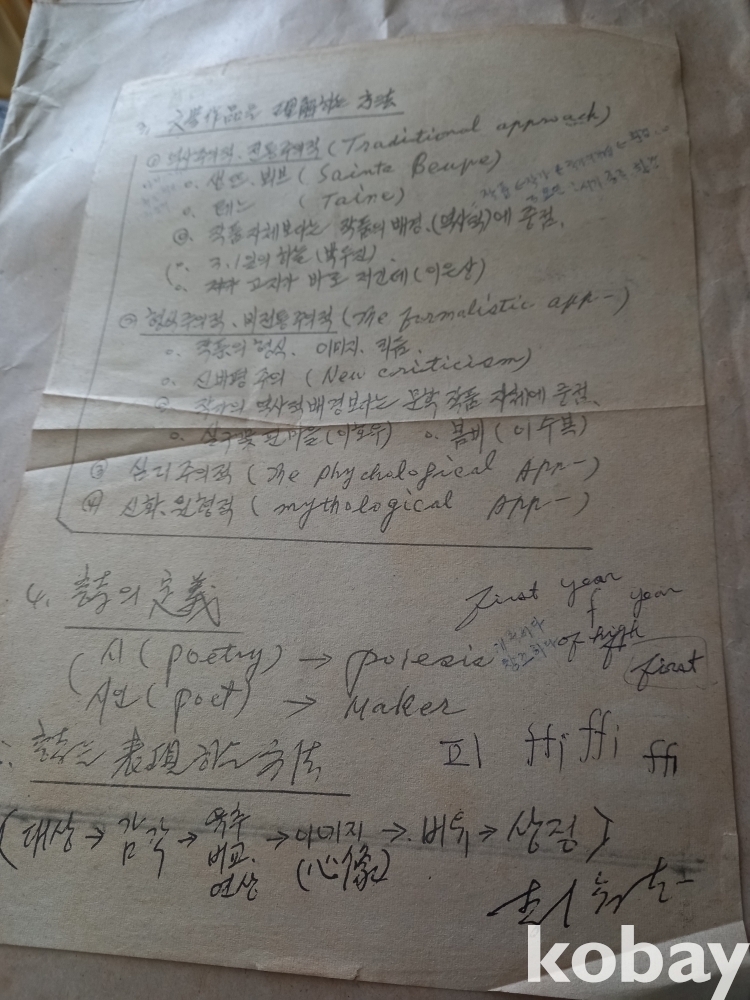 3. 文學作品을 理解하는 方法
① 역사주의적. 전통주의적 (Traditional approach)
o. 생뜨. 뵈브 (Sainte Beupe)
o. 테느 (Taine)
◎. 작품자체보다는 작품의 배경.(역사적)에 중점.
o. 3.1월의 하늘 (박두진)
o. 고지가 바로 저긴데 (이은상)
② 형식주의적. 비전통주의적 (The formalistic app-)
o. 작품의 형식. 이미지.
o. 신비평주의 (New criticism)
◎ 작가의 역사적배경보다는 문학 작품 자체에 중점.
o. 살구꽃 핀 마을 (이호우) o. 봄비 (이수복)
③ 심리주의적 (The phychological App-)
④ 신화. 원형적 (mythological App-)
4. 詩의 定義
first year
f year
of high
first
시 (poetry) → poiesis
시인 (poet) → Maker
詩는 表現하는 方法
ffi ffi ffi
(대상 → 감각 → 유추 비교. 연상 → 이미지 (心像) → 비유 → 상징)
kobay